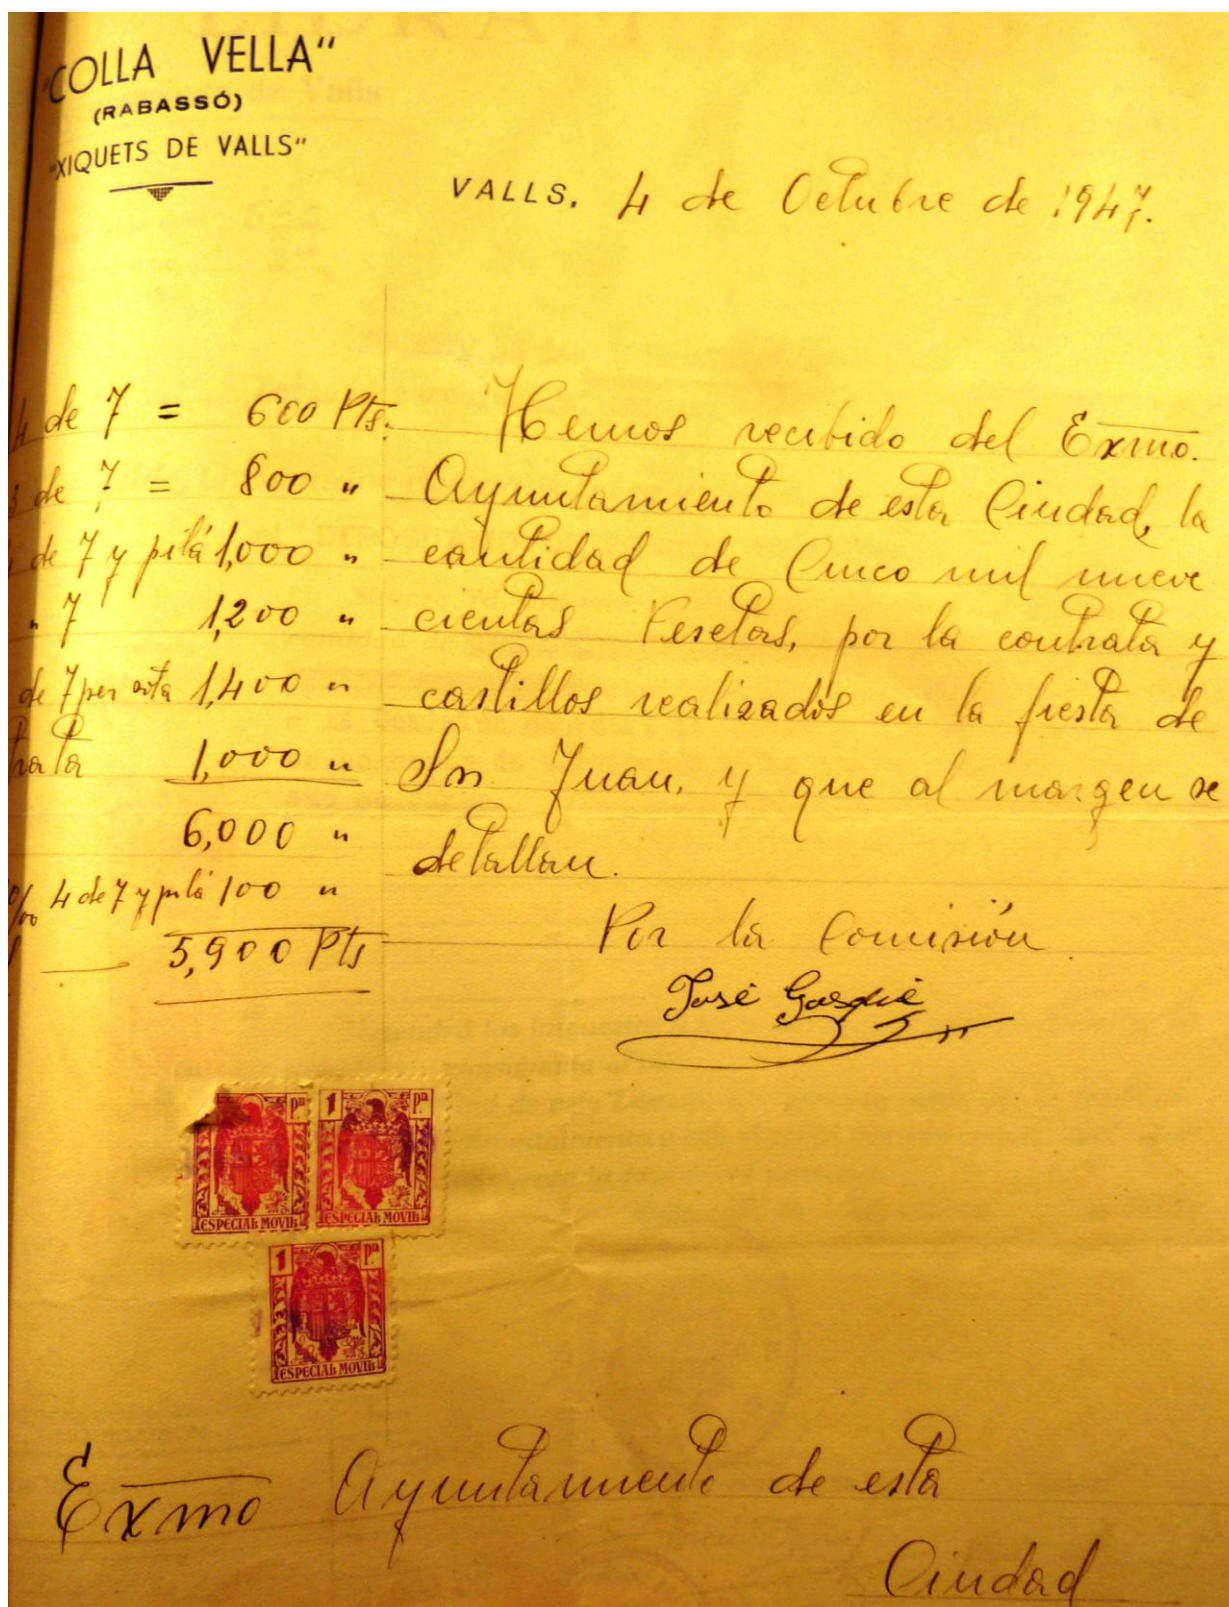 "COLLA VELLA"
(RABASSÓ)
"XIQUETS DE VALLS"
VALLS. 4 de Octubre de 1947.
4 de 7 = 600 Pts.
3 de 7 = 800 "
de 7 y pilá 1,000 "
" 7 1,200 "
de 7 per 1,400 "
trata 1,000 "
6,000 "
4 de 7 y pilá 100 "
5,900 Pts
Hemos recibido del Exmo.
Ayuntamiento de esta Ciudad, la
cantidad de Cinco mil nueve
cientas Pesetas, por la contrata y
castillos realizados en la fiesta de
Sn Juan, y que al margen se
detallan.
Por la Comisión
José
1 Pta
ESPECIAL MOVIL
1 Pta
ESPECIAL MOVIL
1 Pta
ESPECIAL MOVIL
Exmo Ayuntamiento de esta
Ciudad